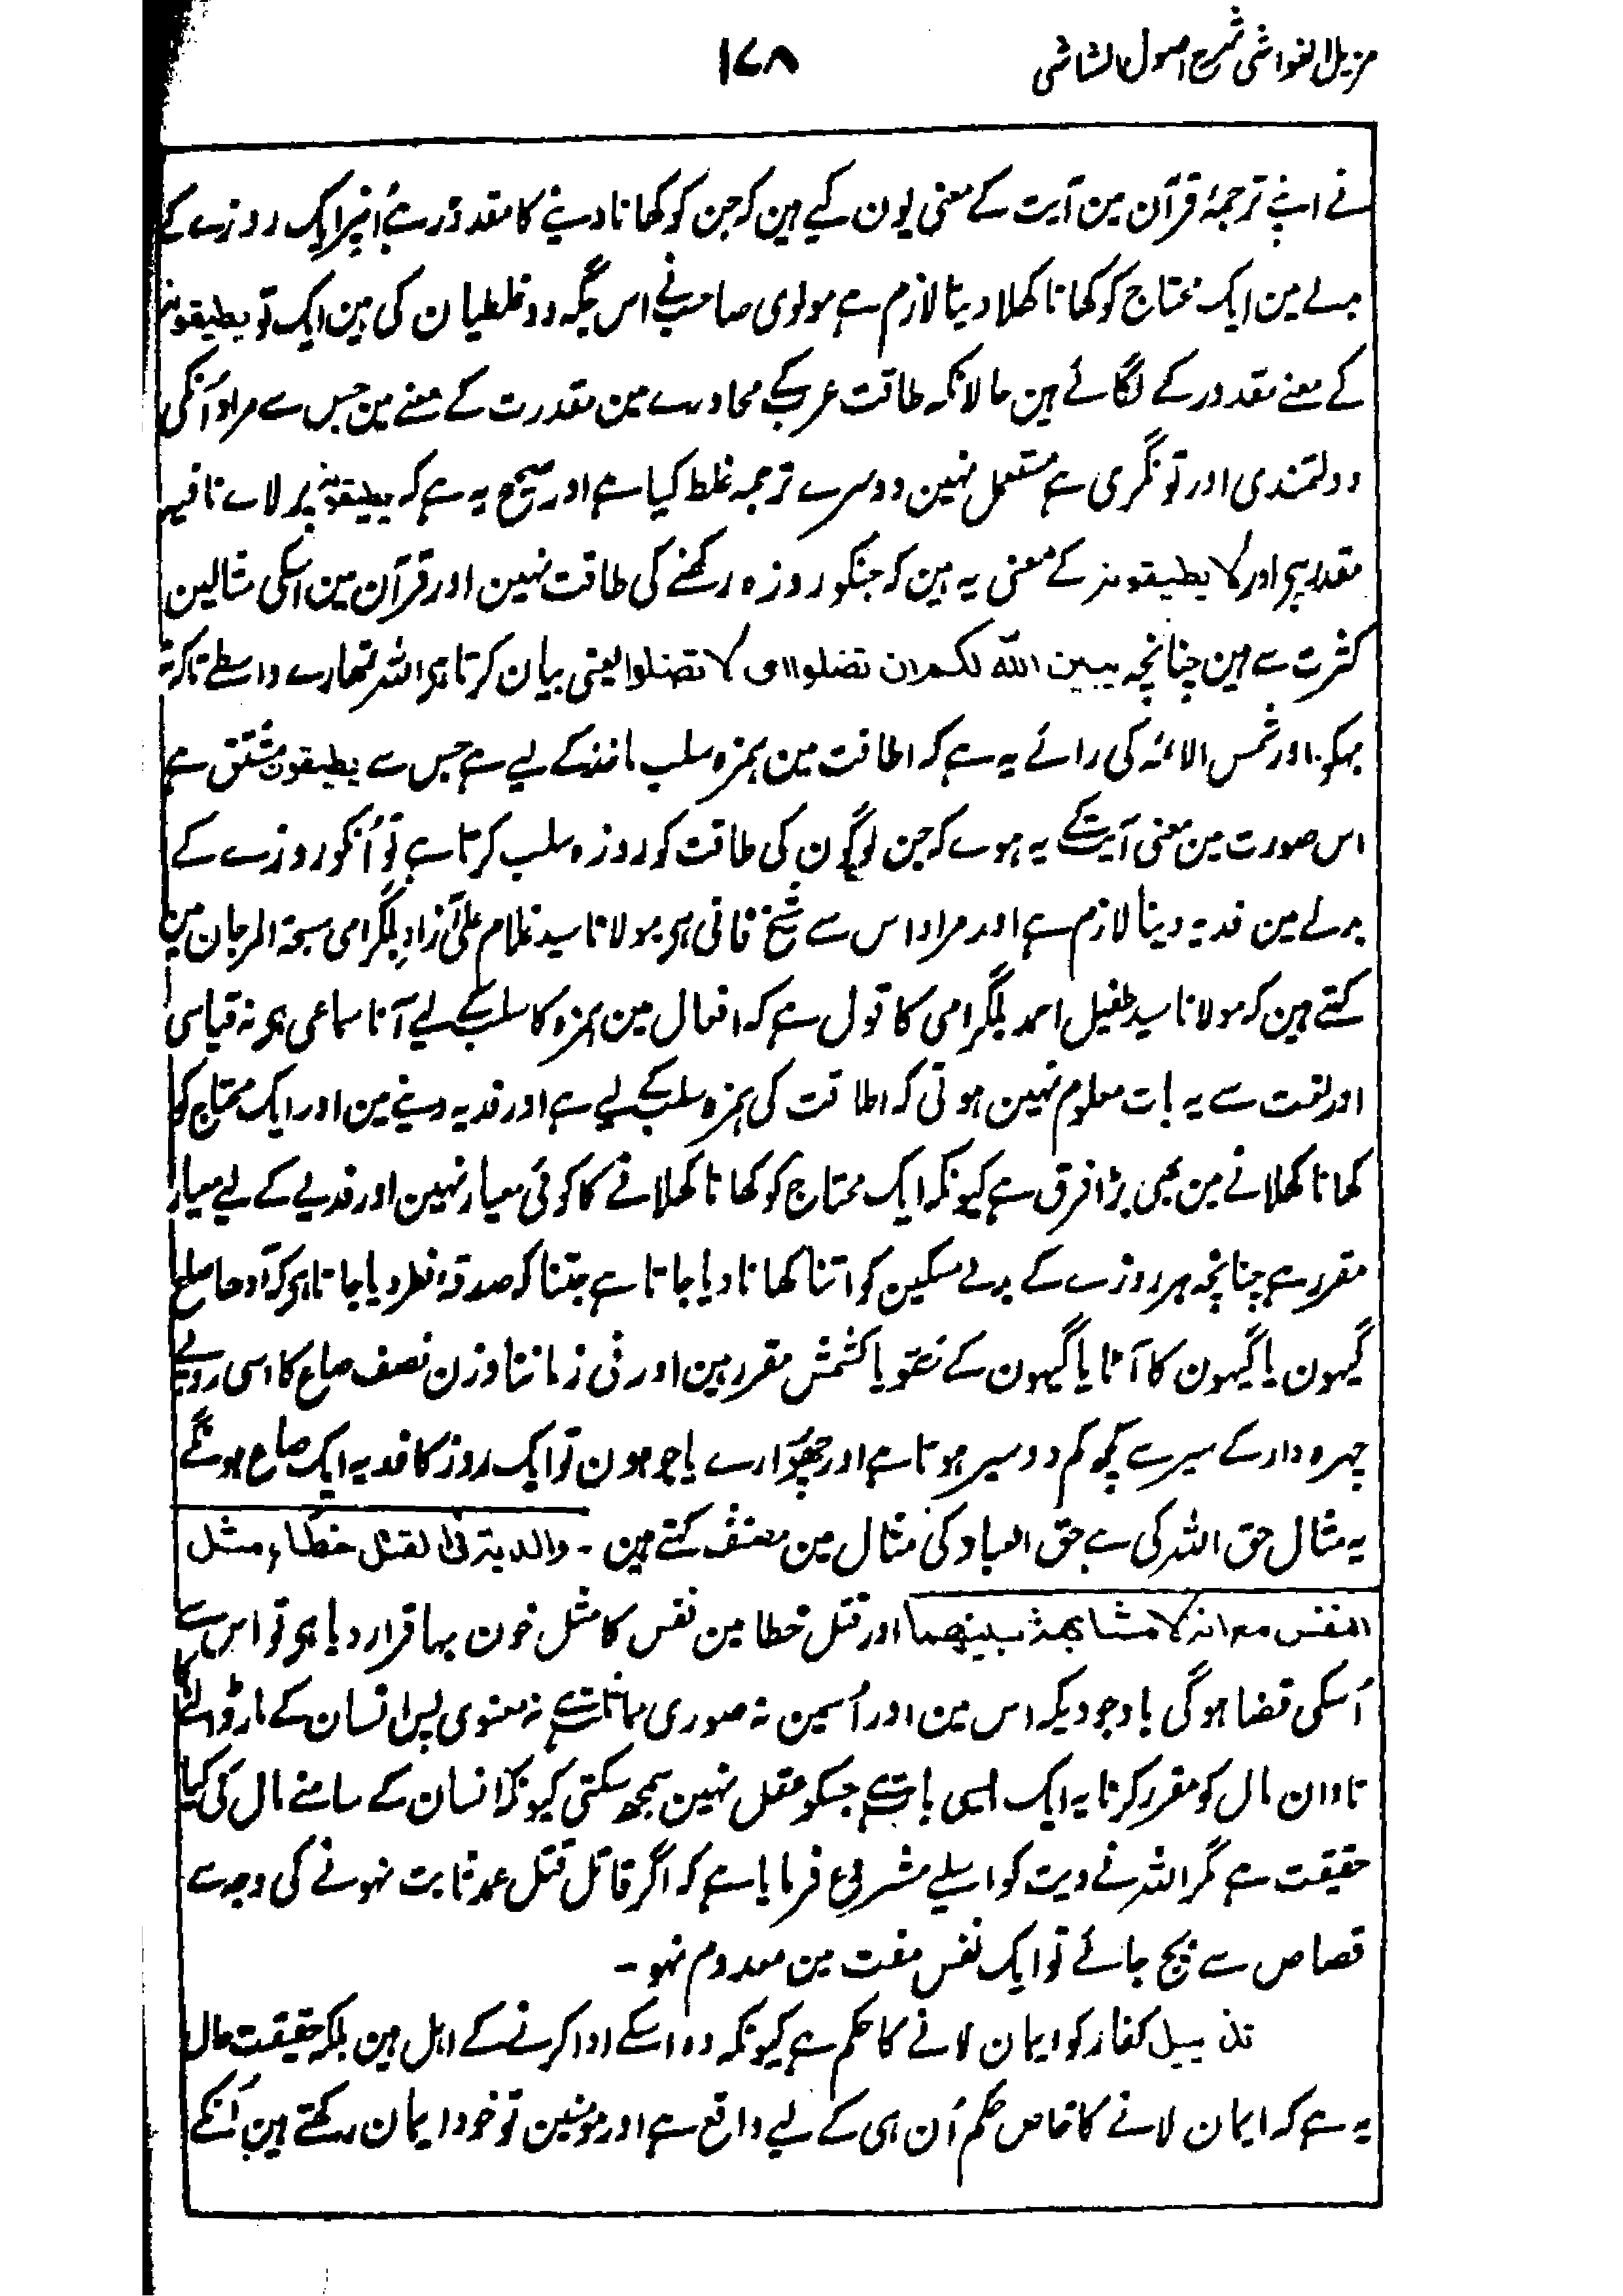 مزیل الغواشی شرح اصول الشاشی
۱۷۸
نے اپنے ترجمۂ قرآن مین آیت کے معنی یون کیے ہین کہ جن کو کھانا دینے کا مقدور ہے اُنپر ایک روزے کے
بدلے مین ایک محتاج کو کھانا کھلا دینا لازم ہے مولوی صاحب نے اس جگہ دو غلطیان کی ہین ایک تو یطیقونہ
کے معنے مقدور کے لگائے ہین حالانکہ طاقت عرب کے محاورے مین مقدرت کے معنے مین جس سے مراد اُنکی
دولتمندی اور تونگری ہے مستعمل نہین دوسرے ترجمہ غلط کیا ہے اور صحیح یہ ہے کہ یطیقونہ پر لاے نافیہ
مقدر ہی اور لا یطیقونہ کے معنی یہ ہین کہ جنکو روزہ رکھنے کی طاقت نہین اور قرآن مین اسکی مثالین
کثرت سے ہین چنانچہ یبین اللہ لکم ان تضلوا ای لا تضلوا یعنی بیان کرتا ہی اللہ تمھارے واسطے تاکہ نہ
بہکو۔ اور شمس الائمہ کی رائے یہ ہے کہ اطاقت مین ہمزہ سلب ماخذ کے لیے ہے جس سے یطیقون مشتق ہے
اس صورت مین معنی آیت کے یہ ہوے کہ جن لوگون کی طاقت کو روزہ سلب کرتا ہے تو اُنکو روزے کے
بدلے مین فدیہ دینا لازم ہے اور مراد اس سے شیخ فانی ہی مولانا سید غلام علی آزاد بلگرامی سبحۃ المرجان مین
کہتے ہین کہ مولانا سید طفیل احمد بلگرامی کا قول ہے کہ افعال مین ہمزہ کا سلب کے لیے آنا سماعی ہی نہ قیاسی
اور لغت سے یہ بات معلوم نہین ہوتی کہ اطاقت کی ہمزہ سلب کے لیے ہے اور فدیہ دینے مین اور ایک محتاج کو
کھانا کھلانے مین بھی بڑا فرق ہے کیونکہ ایک محتاج کو کھانا کھلانے کا کوئی معیار نہین اور فدیے کے لیے معیار
مقرر ہے چنانچہ ہر روزے کے بدلے مسکین کو اتنا کھانا دیا جاتا ہے جتنا کہ صدقۂ فطر دیا جاتا ہی کہ آدھا صاع
گیہون یا گیہون کا آٹا یا گیہون کے ستو یا کشمش مقرر ہین اور فی زماننا وزن نصف صاع کا اسی روپے
چہرہ دار کے سیر سے کچھ کم دو سیر ہوتا ہے اور چھوہارے یا جو ہون تو ایک روز کا فدیہ ایک صاع ہونگے
یہ مثال حق اللہ کی ہے حق العباد کی مثال مین مصنف کہتے ہین ۔ والدیۃ فی القتل خطاء مثل
النفس مع انہ لا مشابھۃ بینھما اور قتل خطا مین نفس کا مثل خون بہا قرار دیا ہی تو اس سے
اُسکی قضا ہوگی باوجودیکہ اس مین اور اُسمین نہ صوری مماثلت ہے نہ معنوی پس انسان کے مار ڈالنے کا
تاوان مال کو مقرر کرنا یہ ایک ایسی بات ہے جسکو عقل نہین سمجھ سکتی کیونکہ انسان کے سامنے مال کی کیا
حقیقت ہے مگر اللہ نے دیت کو اسلیے مشروع فرمایا ہے کہ اگر قاتل قتل عمد ثابت نہونے کی وجہ سے
قصاص سے بچ جائے تو ایک نفس مفت مین معدوم نہو ۔
تذییل کفار کو ایمان لانے کا حکم ہے کیونکہ وہ اسکے ادا کرنے کے اہل ہین بلکہ حقیقت حال
یہ ہے کہ ایمان لانے کا خاص حکم اُن ہی کے لیے واقع ہے اور مومنین تو خود ایمان رکھتے ہین اُنکے